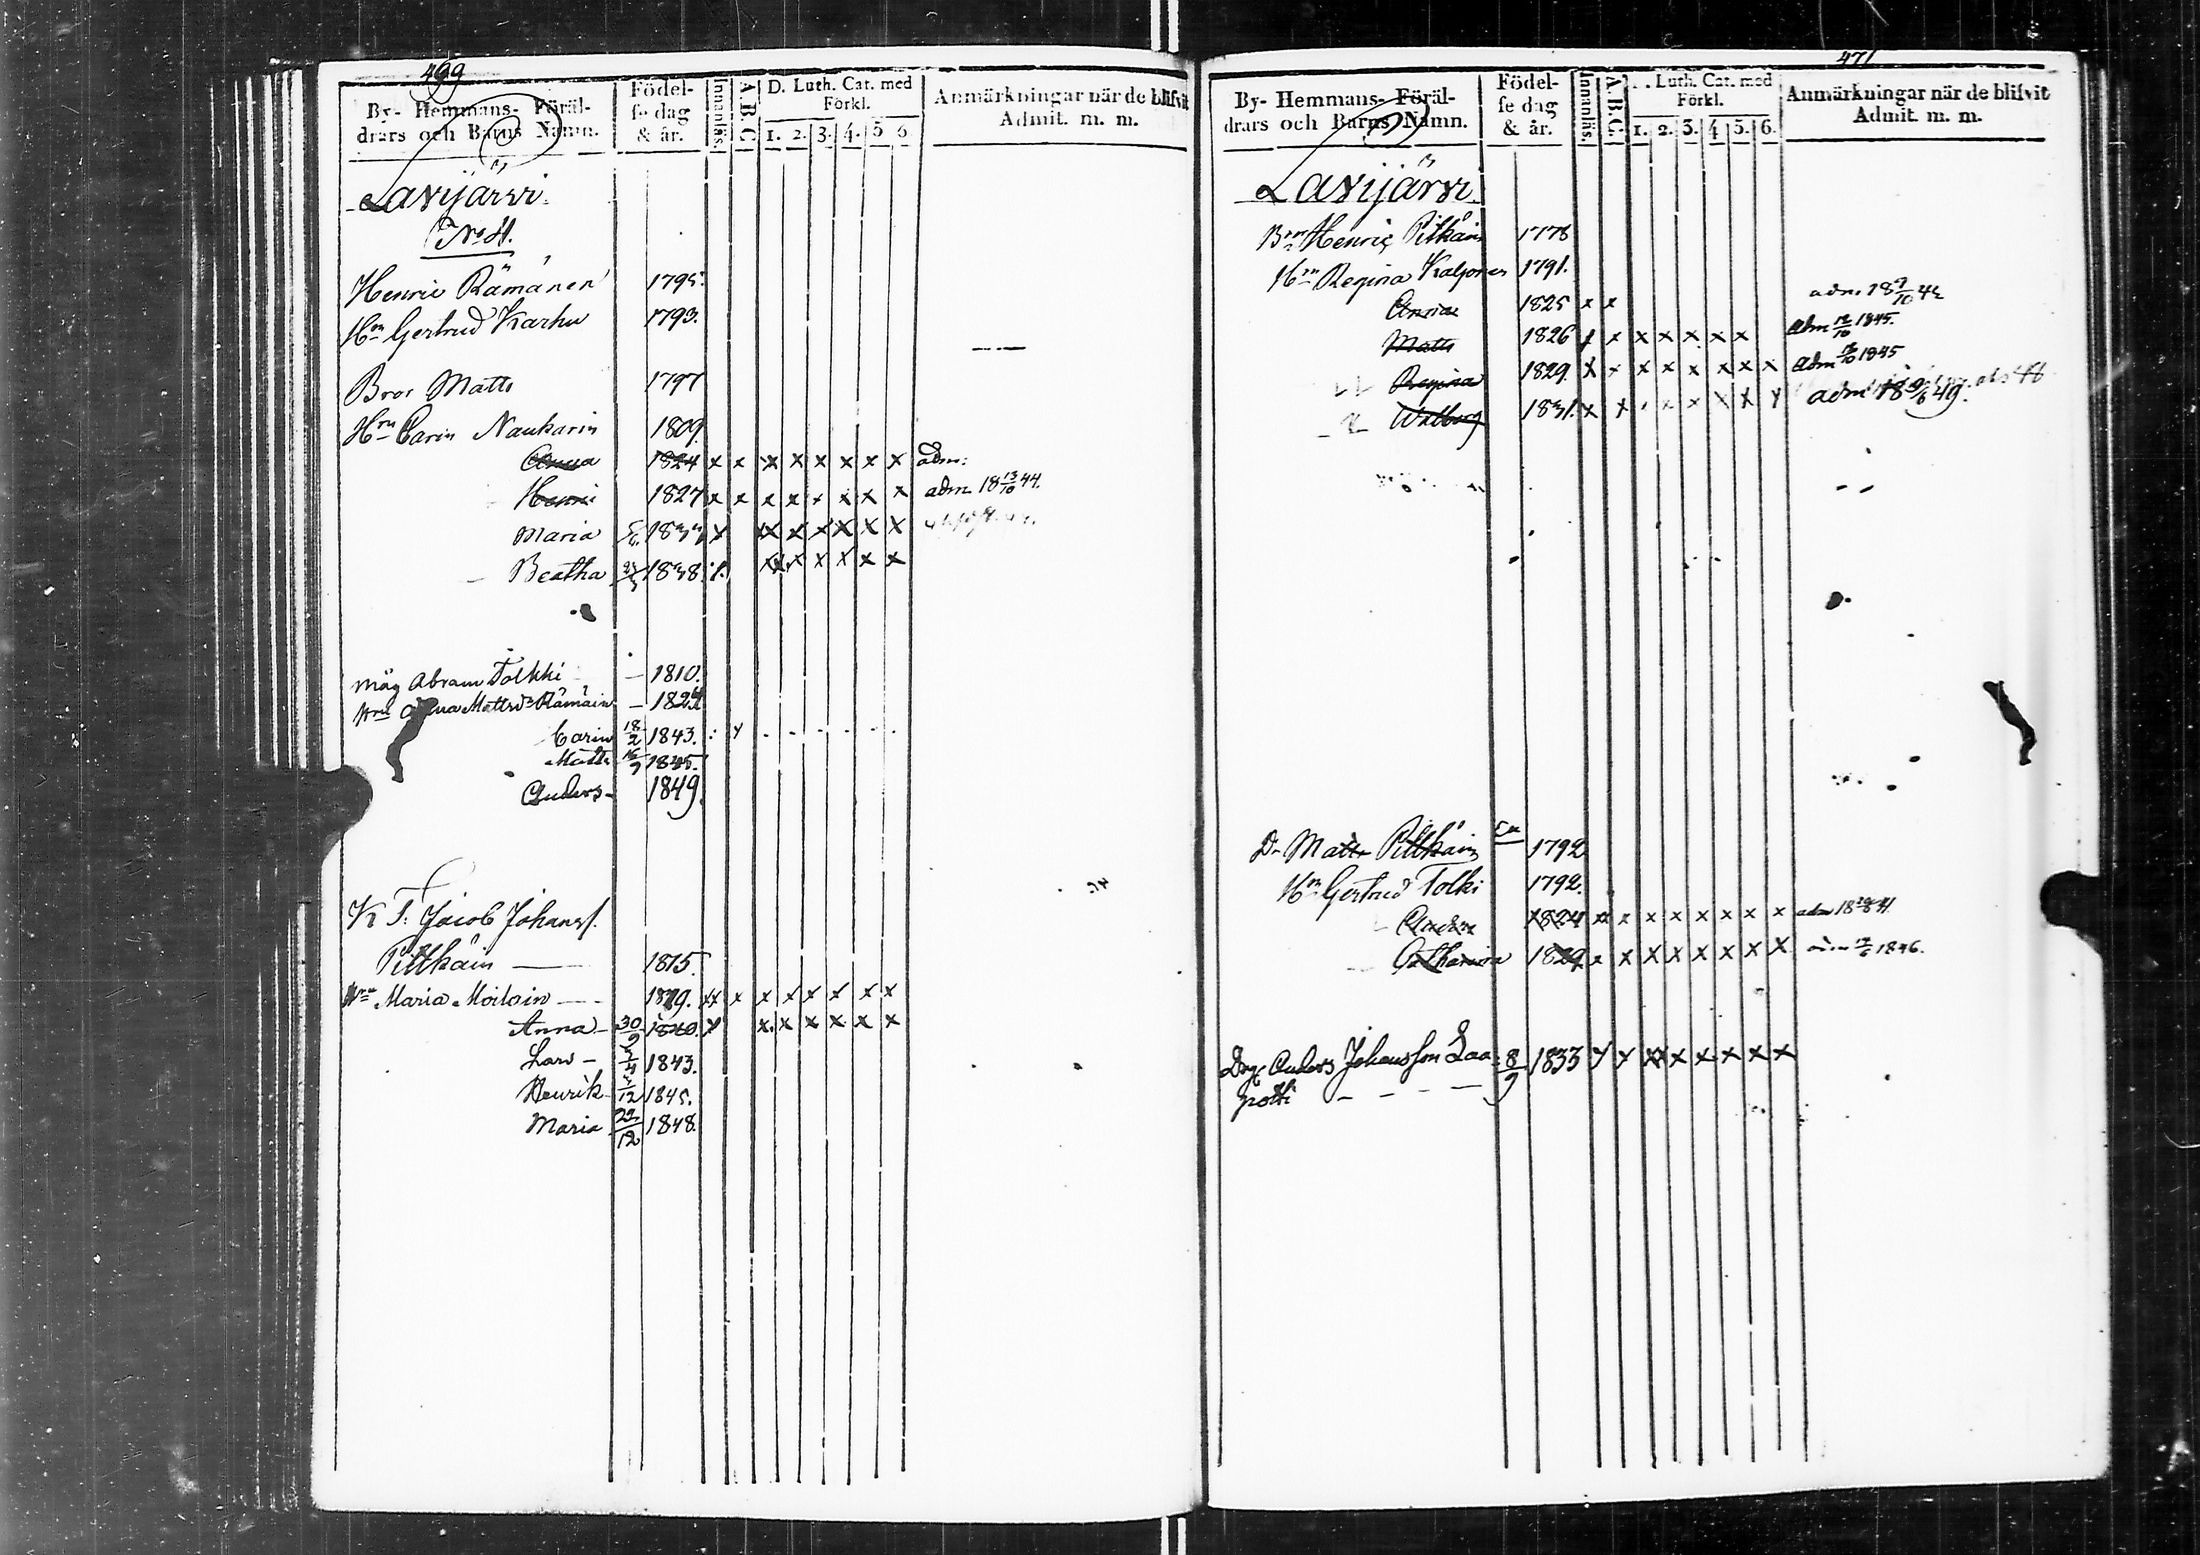 499
By- Hemmans- Föräl-
drars och Barns Namn.
Födel-
se dag
& år.
Innanläs.
A B C
D. Luth. Cat. med
Förkl.
1. 2. 3. 4. 5 6
Anmärkningar när de blifvit
Admit. m. m.
Lavijärvi
No 4.
Henric Rämänen 1795.
Hru Gertrud Karhu 1793.
Bror Matts 1797
Hru Carin Naukarin 1809
Anna 1824 x x x x x x x x adm:
Henric 1827 x x x x x x x x adm. 18 13/10 44.
Maria x x x x x x x
Beatha 1838 x x x x x x
Måg Abram Tolkki — 1810.
Hru Anna Mattsdr Rämäin — 1824
Carin 18/2 1843.
Matts 1845.
Anders 1849.
K T. Jacob Johanss.
Pitkäin — 1815.
Hru Maria Moilain — 1819. x x x x x x x x
Anna 30/9 1840. x x x x x x x
Lars — 1843.
Henrik 1845.
Maria 22/12 1848.
471
By- Hemmans- Föräl-
drars och Barns Namn.
Födel-
se dag
& år.
Innanläs.
A B C.
. . Luth. Cat. med
Förkl.
1. 2. 3. 4 5. 6.
Anmärkningar när de blifvit
Admit. m. m.
Lavijärvi
Henric Pitkäin 1778
Hru Regina Kaljonen 1791.
Anna 1825 x x adm 18 9/10 42
Matts 1826 x x x x x x x adm 12/10 1845.
Regina 1829. x x x x x x x x adm 1845
Walborg 1831. x x x x x x x x adm 18 49.
D. Matts Pitkäin 1792
Hru Gertrud Tolki 1792.
1824 x x x x x x x x adm 18
Catharina 1829 x x x x x x x x 1846.
Drg. Anders Johansson Laa- 8/9 1833 x x x x x x x x
potti